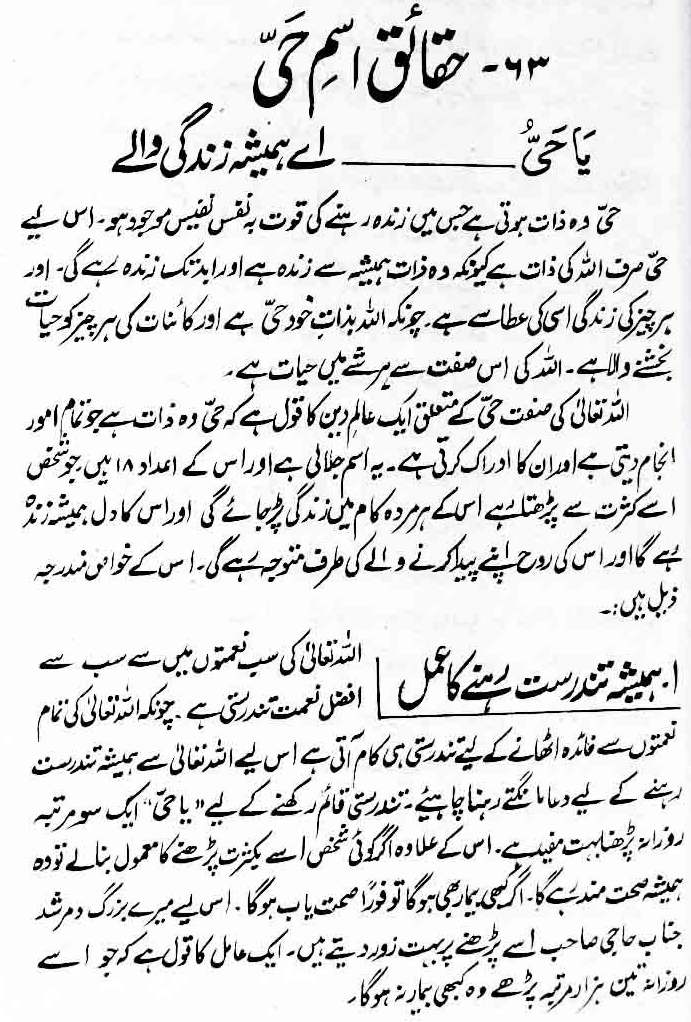 ۶۳- حقائق اسمِ حَیّ
یَا حَیُّ ــــــــــــ اے ہمیشہ زندگی والے
حیّ وہ ذات ہوتی ہے جس میں زندہ رہنے کی قوت بہ نفس نفیس موجود ہو۔ اس لیے
حیّ صرف اللہ کی ذات ہے کیونکہ وہ ذات ہمیشہ سے زندہ ہے اور ابد تک زندہ رہے گی۔ اور
ہر چیز کی زندگی اسی کی عطا سے ہے۔ چونکہ اللہ بذاتِ خود حیّ ہے اور کائنات کی ہر چیز کو حیات
بخشنے والا ہے۔ اللہ کی اس صفت سے ہر شے میں حیات ہے۔
اللہ تعالیٰ کی صفت حیّ کے متعلق ایک عالمِ دین کا قول ہے کہ حیّ وہ ذات ہے جو تمام امور
انجام دیتی ہے اور ان کا ادراک کرتی ہے۔ یہ اسم جلالی ہے اور اس کے اعداد ۱۸ ہیں جو شخص
اسے کثرت سے پڑھتا رہے اس کے ہر مردہ کام میں زندگی پڑ جائے گی اور اس کا دل ہمیشہ زندہ
رہے گا اور اس کی روح اپنے پیدا کرنے والے کی طرف متوجہ رہے گی۔ اس کے خواص مندرجہ
ذیل ہیں:۔
۱۔ ہمیشہ تندرست رہنے کا عمل
اللہ تعالیٰ کی سب نعمتوں میں سے سب سے
افضل نعمت تندرستی ہے۔ چونکہ اللہ تعالیٰ کی تمام
نعمتوں سے فائدہ اٹھانے کے لیے تندرستی ہی کام آتی ہے اس لیے اللہ تعالیٰ سے ہمیشہ تندرست
رہنے کے لیے دعا مانگتے رہنا چاہیئے۔ تندرستی قائم رکھنے کے لیے "یا حیّ" ایک سو مرتبہ
روزانہ پڑھنا بہت مفید ہے۔ اس کے علاوہ اگر کوئی شخص اسے بکثرت پڑھنے کا معمول بنا لے تو وہ
ہمیشہ صحت مند رہے گا۔ اگر کبھی بیمار بھی ہوگا تو فوراً صحت یاب ہوگا۔ اس لیے میرے بزرگ و مرشد
جناب حاجی صاحب اسے پڑھنے پر بہت زور دیتے ہیں۔ ایک عامل کا قول ہے کہ جو اسے
روزانہ تین ہزار مرتبہ پڑھے وہ کبھی بیمار نہ ہوگا۔